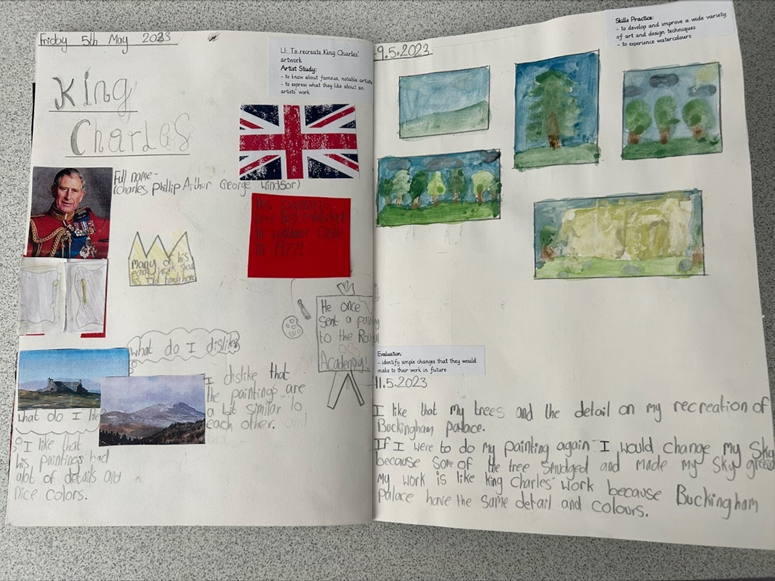 Friday 5th May 2023
LI: To recreate King Charles'
artwork
Artist Study:
- to know about famous, notable artists
- to express what they like about an
artists' work
King
Charles
Full name-
(charles philip Arthur George windsor)
Many of his
is
in 1977!
He once
sent a
to the Royal
Academy.
what do I dislike
I dislike that
the paintings are
a bit similar to
each other.
what do I
I like that
his paintings had
alot of details and
nice colors.
9.5.2023
Skills Practice:
- to develop and improve a wide variety
of art and design techniques
- to experience watercolours
Evaluation
- identify simple changes that they would
make to their work in future
11.5.2023
I like that my trees and the detail on my recreation of
Buckingham palace.
If I were to do my painting again I would change my sky
because some of the tree smudged and made my sky green
My work is like king Charles' work because Buckingham
Palace have the same detail and colours.